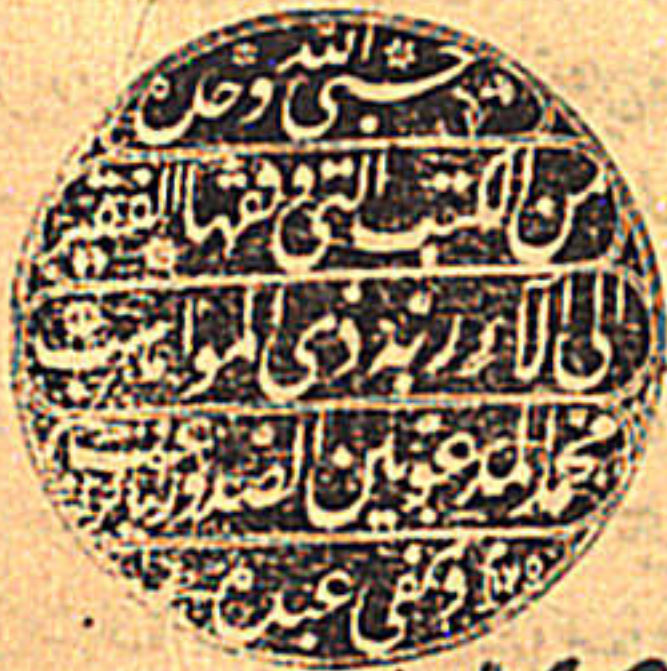 حسبي الله وحده
من الكتب التي وقفها الفقير
الى آلاء ربه ذي المواهب
محمد المدعو بين الصدور براغب
وكفى عبده